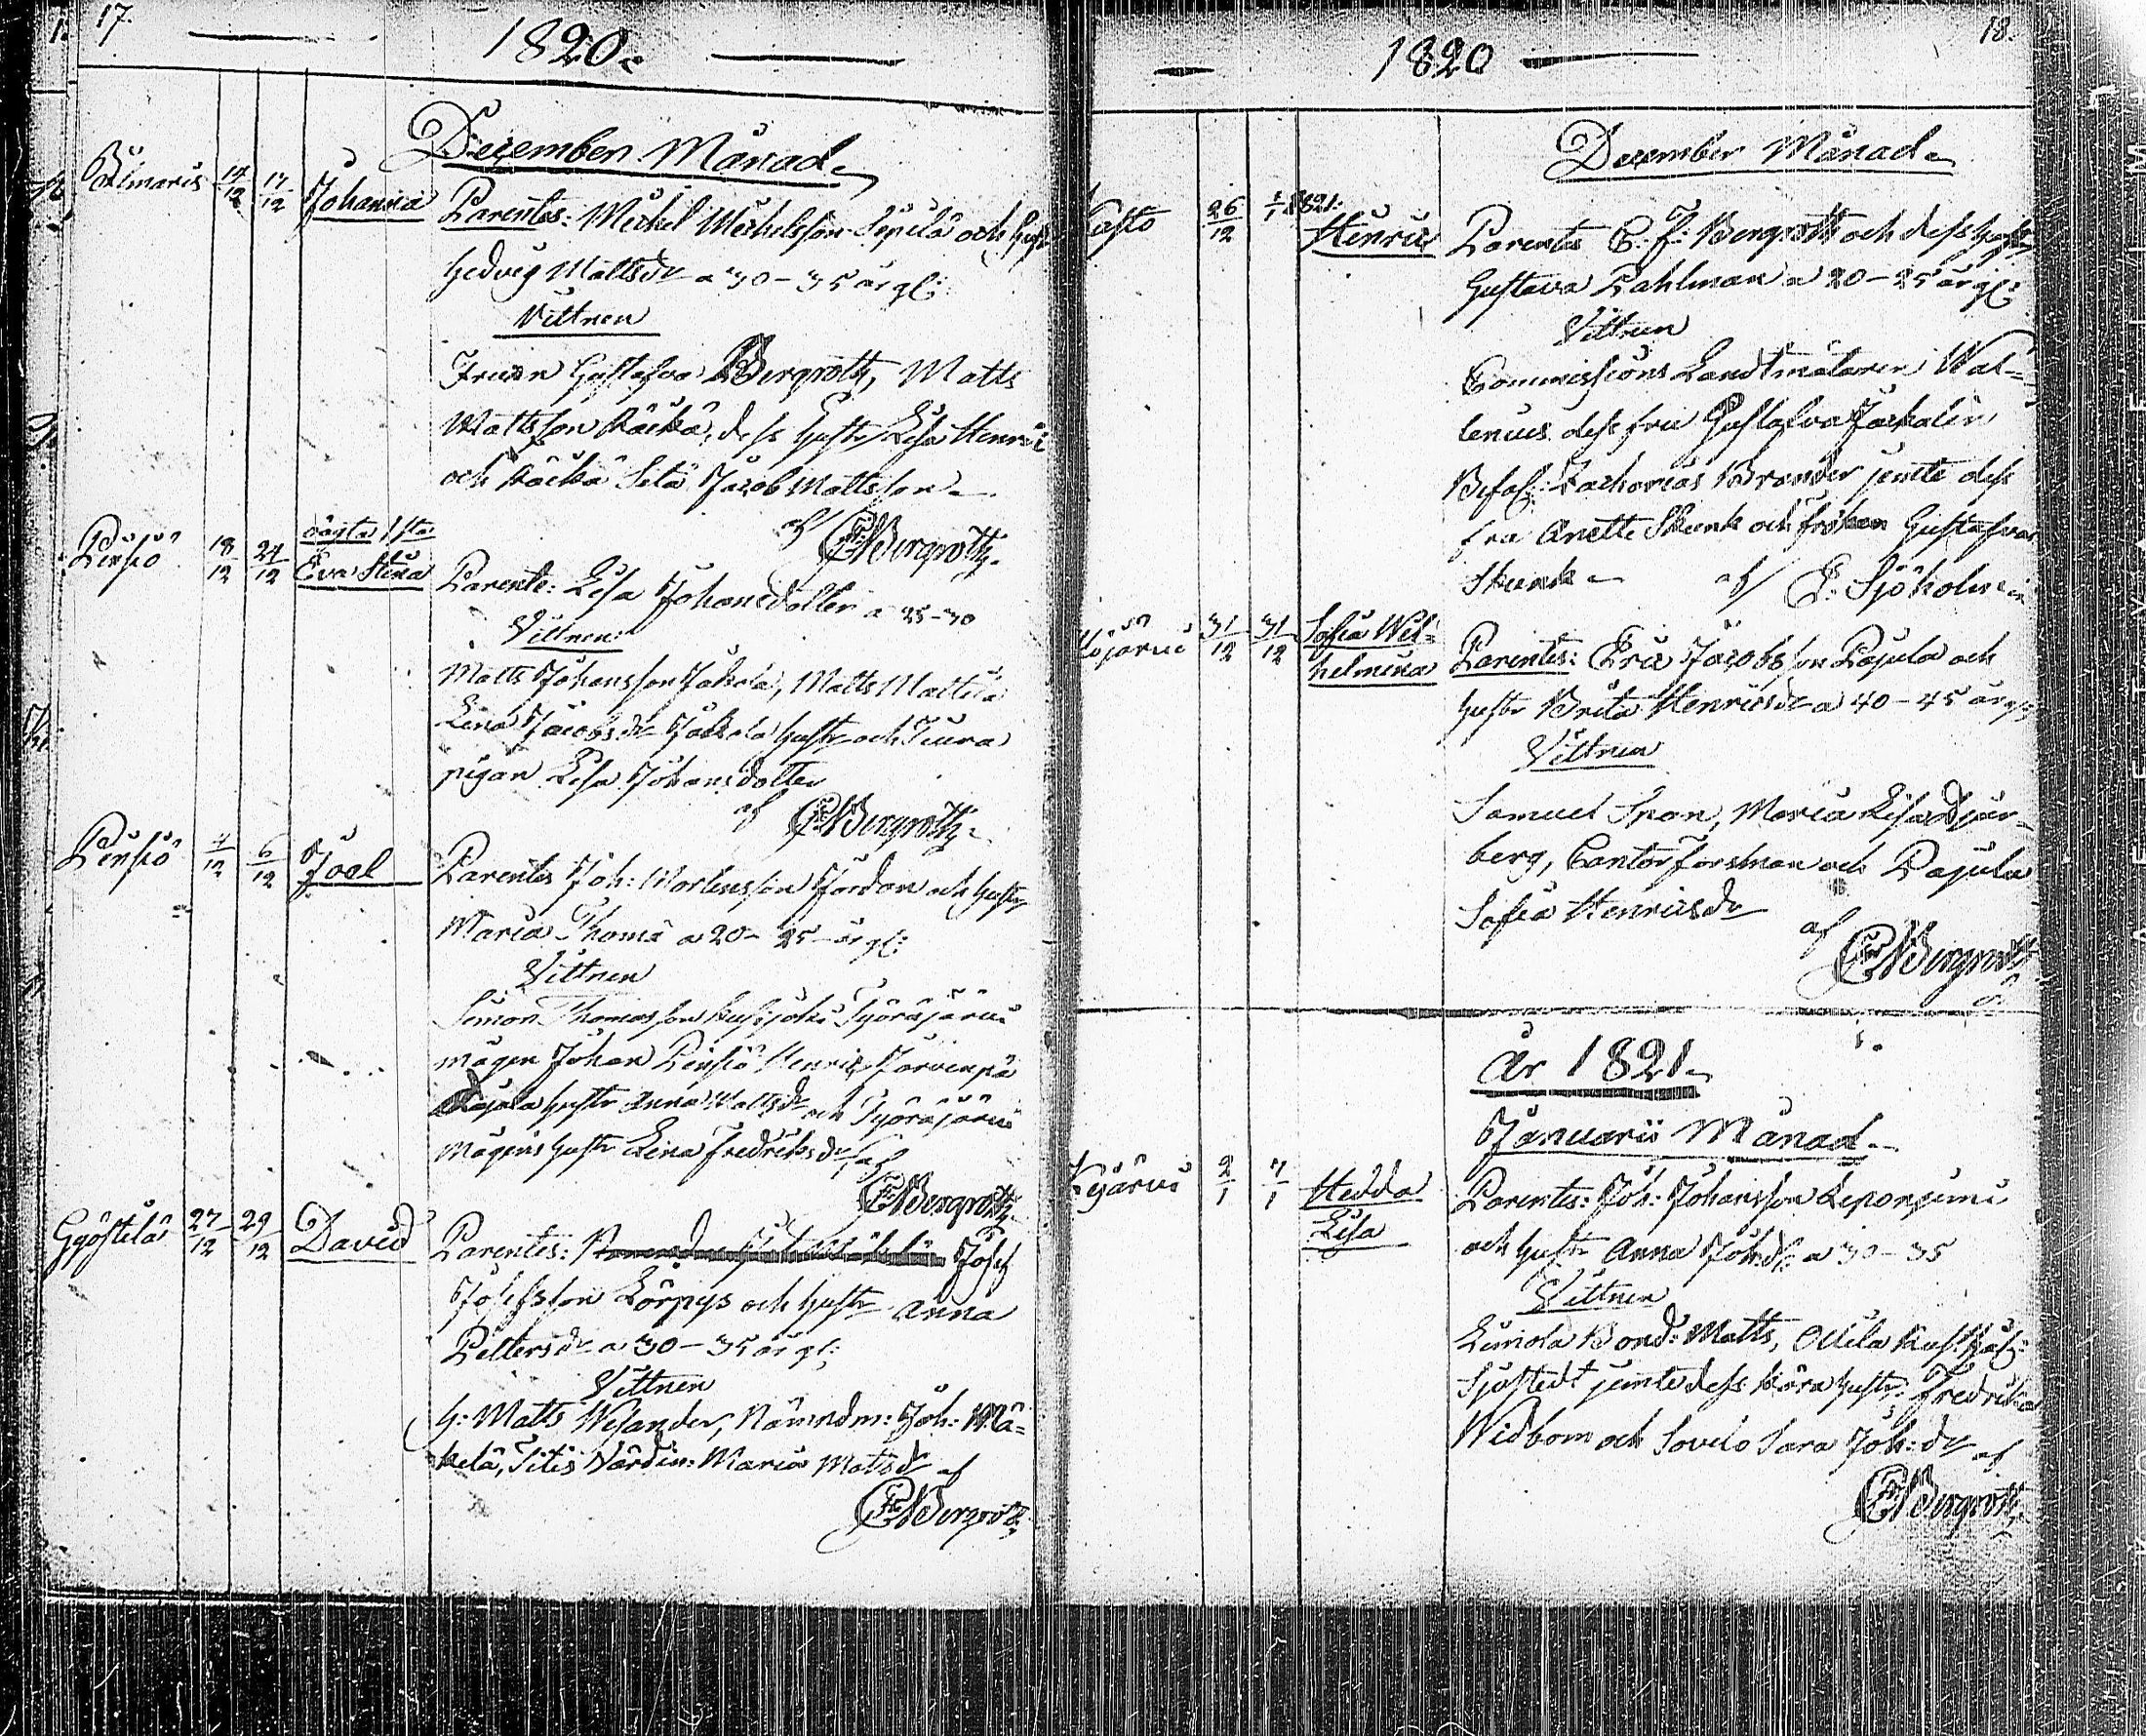 17.
1820.
December Månad.
14/12 17/12 Johanna Parentes: Michel Michelsson Sepelä och hustr
Hedvig Mattsdr a 30-35 år gl:
Vittnen
Fruen Gustafva Bergroth, Matts
Mattsson dess hustr Lisa Henric
och Jacob Mattsson
af CFBergroth.
Pensiö 18/12 24/12 oägta 1sta
Eva Stina Parente: Lisa Johansdotter a 25-30
Vittnen:
Matts Johansson Jakola, Matts Mattila
Lena Jacobsdr Jakola hustr och
pigan Lisa Johansdotter
af CFBergroth.
Pensiö 4/12 6/12 Joel Parentes Joh: Mortensson Jordan och hustr
Maria Thoms a 20-25 år gl:
Vittnen
Simon Thomasson Työräjärvi
mågen Johan Pensiö Henric Järvenpä
hustr Anna Mattsdr och Työräjärvi
mågens hustr Lena Fredriksdr, af
CFBergroth
27/12 29/12 David Parentes: Josef
Josefsson Körpys och hustr Anna
Pettersdr a 30-35 år gl:
Vittnen
H: Matts Wesander, Nämndm: Joh: Mä-
kelä, Titis Värdin: Maria Mattsdr af
CFBergroth
18.
1820
December Månad.
26/12 1/1 1821. Henric Parentes C: F: Bergroth och dess hustr
Gustava Pahlman a 20-25 år gl:
Vittnen
Commissions Landtmätaren Wal-
lenius dess fru Gustafva
Befal: Zachorias Brander jemte dess
fru Anette Skunk och fröken Gustafva
Skunk af E. Sjöholm
31/12 31/12 Sofia Wil-
helmina Parentes: Eric Jacobsson Pajula och
hustr Brita Henricsdr a 40-45 år gl:
Vittnen
Samuel Span, Maria Lisa Djur-
berg, Cantor Forsman och Pajula
Sofia Henricsdr af
CFBergroth
År 1821.
Januarii Månad.
Kyärvi 2/1 7/1 Hedda
Lisa Parentes: Joh: Johansson Leponjemi
och hustr Anna Joh:dr a 30-35
Vittnen
Bond: Matts,
Sjöstedt jemte dess kära hustr: Fredrika
Widbom och Sovelo Sara Joh:dr af
CFBergroth